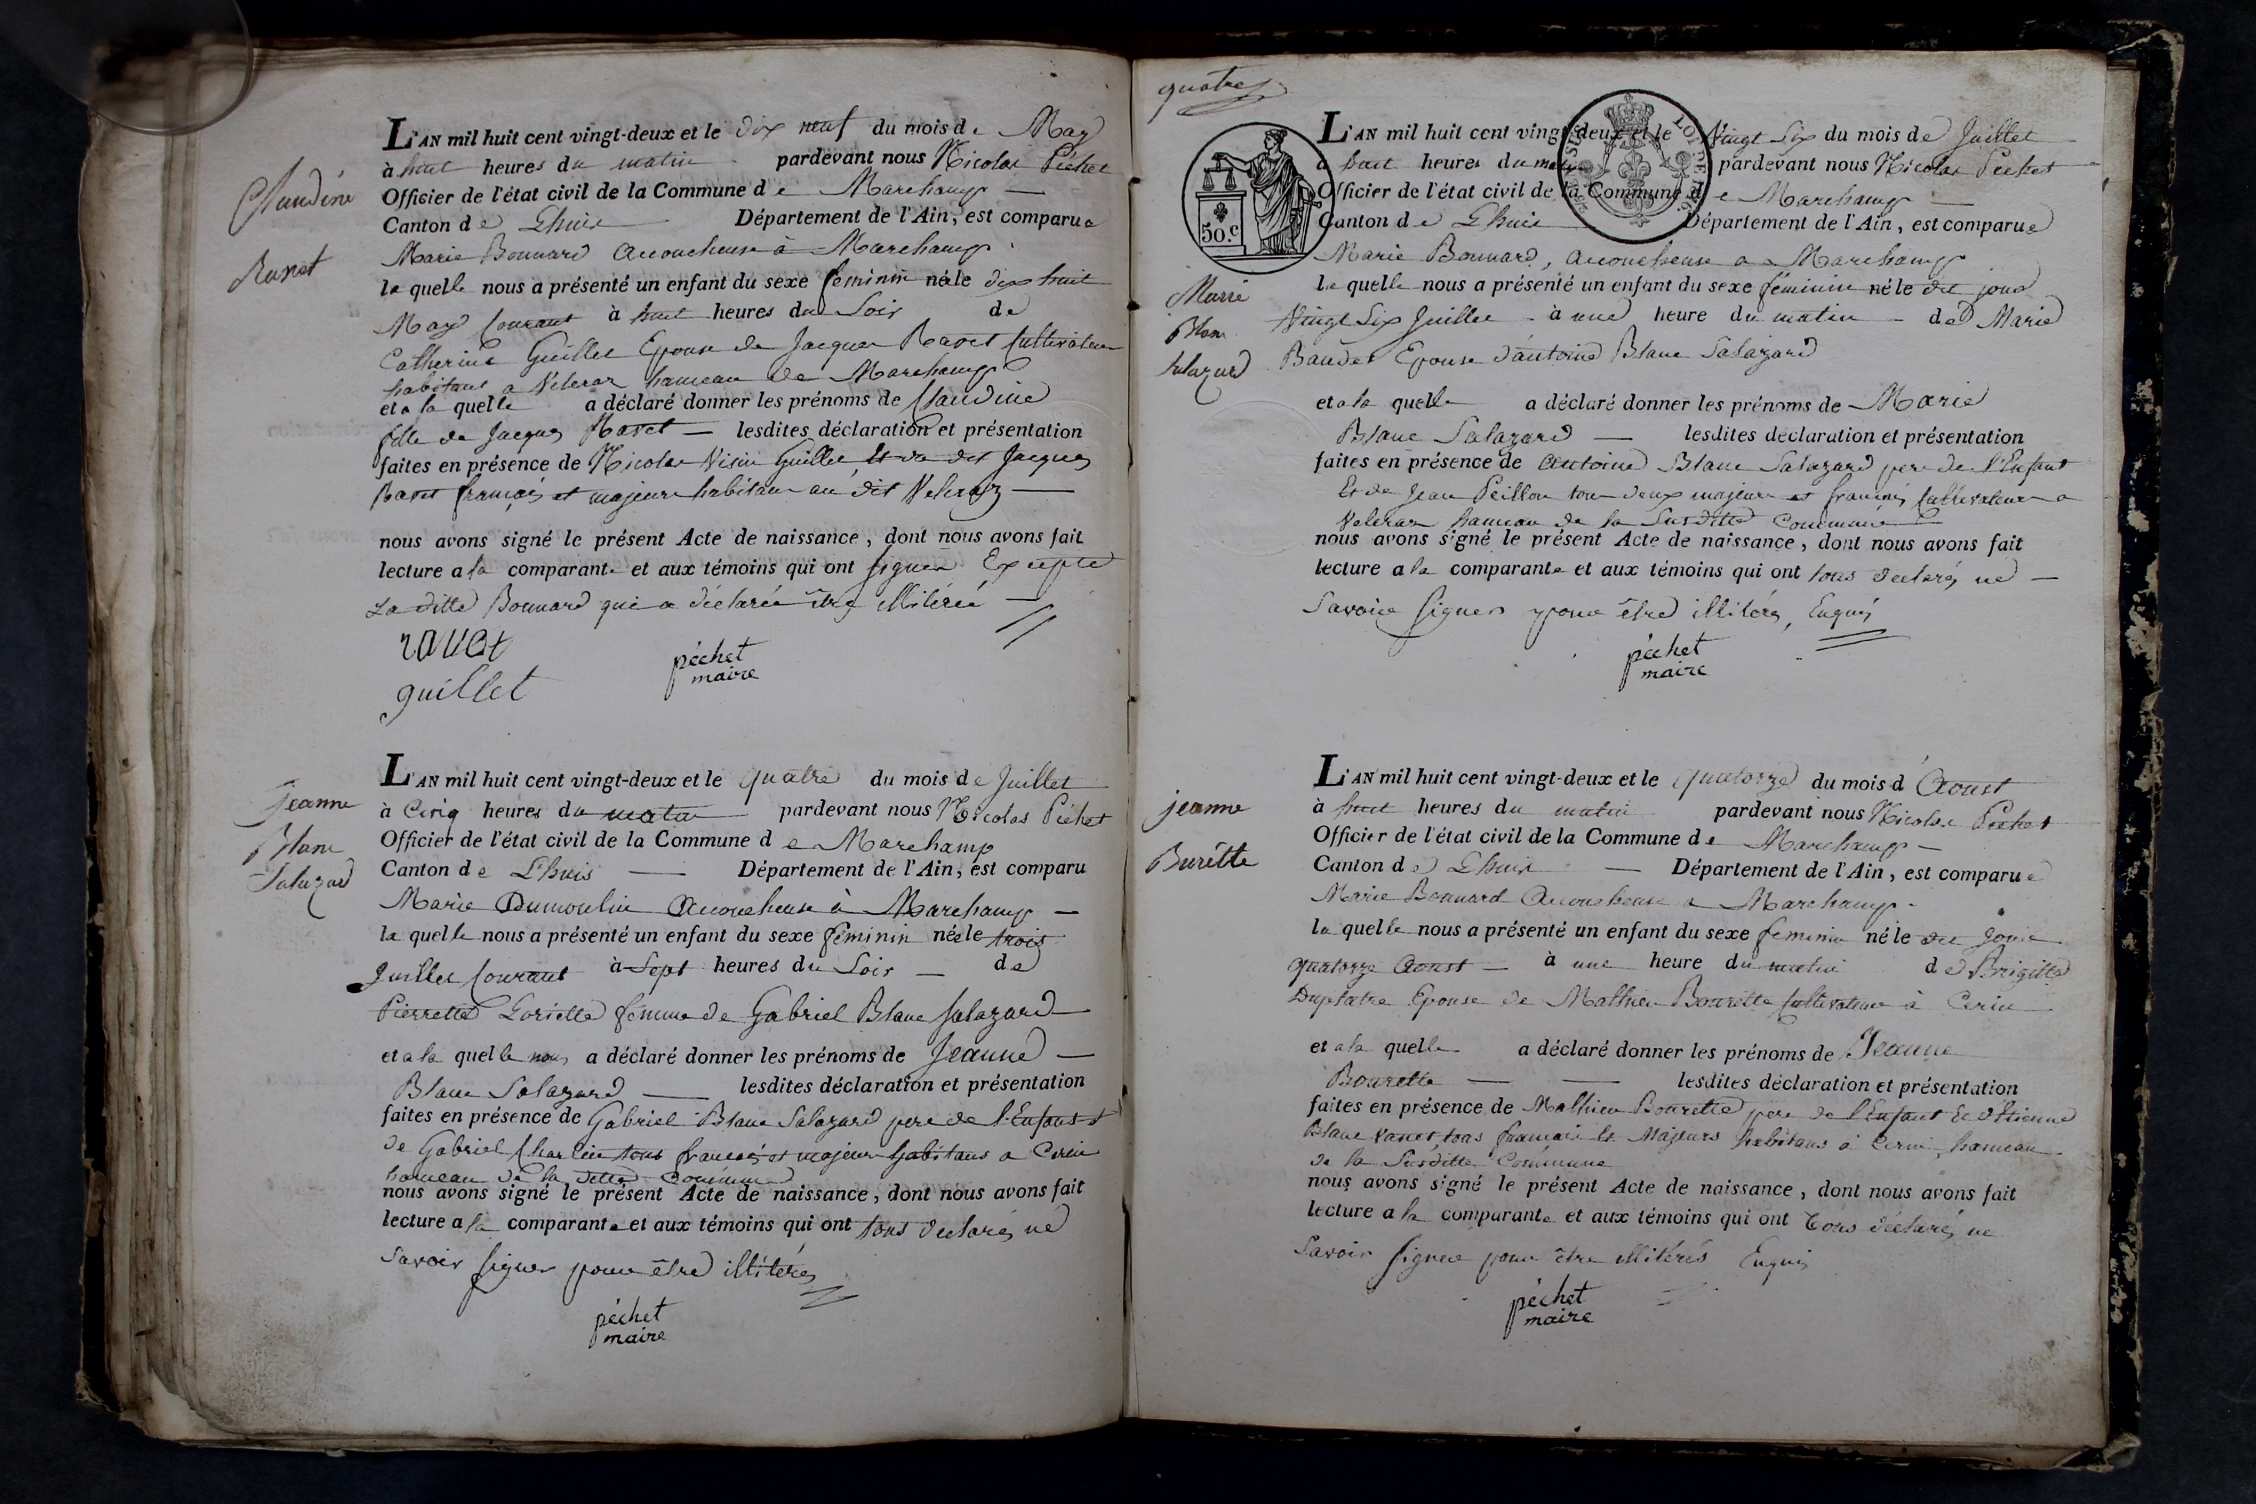 Claudine
Ravet
L'AN mil huit cent vingt-deux et le dix neuf du mois de May
à huit heures du matin pardevant nous Nicolas Péchet
Officier de l'état civil de la Commune de Marchamp
Canton de Lhuis Département de l'Ain, est comparue
Marie Bonnard accoucheuse à Marchamp
la quelle nous a présenté un enfant du sexe feminin né le dix huit
May courant à huit heures du Soir de
Catherine Guillet Epouse de Jacques Ravet Cultivateur
habitant a Veleraz hameau de Marchamp
et a la quelle a déclaré donner les prénoms de Claudine
fille de Jacques Ravet lesdites déclaration et présentation
faites en présence de Nicolas Guillet Et du dit Jacques
Ravet français et majeurs habitans au dit Veleraz
nous avons signé le présent Acte de naissance, dont nous avons fait
lecture a la comparante et aux témoins qui ont signer Excepté
La ditte Bonnard qui a déclarée être illiterée
ravet
guillet
péchet
maire
Jeanne
Blanc
Salazard
L'AN mil huit cent vingt-deux et le quatre du mois de Juillet
à Cinq heures du matin pardevant nous Nicolas Péchet
Officier de l'état civil de la Commune de Marchamp
Canton de Lhuis Département de l'Ain, est comparu
Marie Dumoulin Accoucheuse à Marchamp
la quelle nous a présenté un enfant du sexe féminin née le trois
Juillet Courant à Sept heures du Soir de
Pierrette Goriette femme de Gabriel Blanc Salazard
et a la quelle nous a déclaré donner les prénoms de Jeanne
Blanc Salazard lesdites déclaration et présentation
faites en présence de Gabriel Blanc Salazard pere de l'Enfant et
de Gabriel Charlin tous français et majeurs habitans a Cerin
hameau de la ditte Commune
nous avons signé le présent Acte de naissance, dont nous avons fait
lecture a la comparante et aux témoins qui ont tous declarés ne
Savoir signer pour être illitérés
péchet
maire
quatre
50.c
LOI DE 1816
Marie
Blanc
Salazard
L'AN mil huit cent vingt-deux et le Vingt Six du mois de Juillet
à huit heures du matin pardevant nous Nicolas Péchet
Officier de l'état civil de la Commune de Marchamp
Canton de Lhuis Département de l'Ain, est comparue
Marie Bonnard, accoucheuse a Marchamp
la quelle nous a présenté un enfant du sexe féminin né le dit jour
Vingt Six Juillet à une heure du matin de Marie
Baudet Epouse d'antoine Blanc Salazard
et a la quelle a déclaré donner les prénoms de Marie
Blanc Salazard lesdites déclaration et présentation
faites en présence de antoine Blanc Salazard pere de l'Enfant
Et de Jean Peillon tous deux majeurs et français Cultivateurs a
Veleraz hameau de la Susditte Commune
nous avons signé le présent Acte de naissance, dont nous avons fait
lecture a la comparante et aux témoins qui ont tous declarés ne
Savoir signer pour être illitérés, Enquis
péchet
maire
jeanne
Burétte
L'AN mil huit cent vingt-deux et le quatorze du mois d'Aoust
à huit heures du matin pardevant nous Nicolas Pechet
Officier de l'état civil de la Commune de Marchamp
Canton de Lhuis Département de l'Ain, est comparue
Marie Bonnard Accoucheuse a Marchamp
la quelle nous a présenté un enfant du sexe feminin né le dit jour
quatorze Aoust à une heure du matin de Brigitte
Duplatre Epouse de Mathieu Bourette Cultivateur à Cerin
et a la quelle a déclaré donner les prénoms de Jeanne
Bourette lesdites déclaration et présentation
faites en présence de Mathieu Bourette pere de l'Enfant Et d'Etienne
Blanc tous français Et Majeurs habitans à Cerin, hameau
de la Susditte Commune
nous avons signé le présent Acte de naissance, dont nous avons fait
lecture a la comparante et aux témoins qui ont tous déclarés ne
Savoir signer pour être illitérés Enquis
péchet
maire